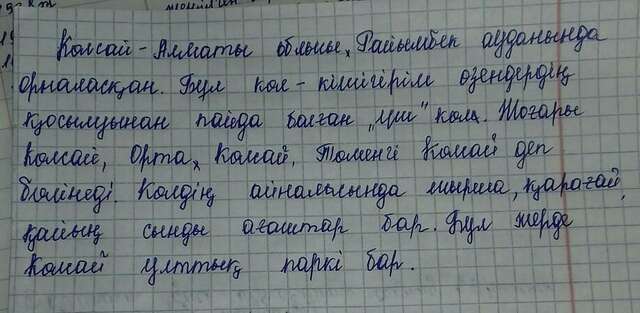 Колсай - Алматы облысы, Райымбек ауданында
орналасқан. Бұл көл - кішігірім өзендердің
қосылуынан пайда болған "үш" көл. Жоғары
Колсай, Орта Колсай, Төменгі Колсай деп
бөлінеді. Көлдің айналасында шырша, қарағай,
қайың сынды ағаштар бар. Бұл жерде
Колсай ұлттық паркі бар.